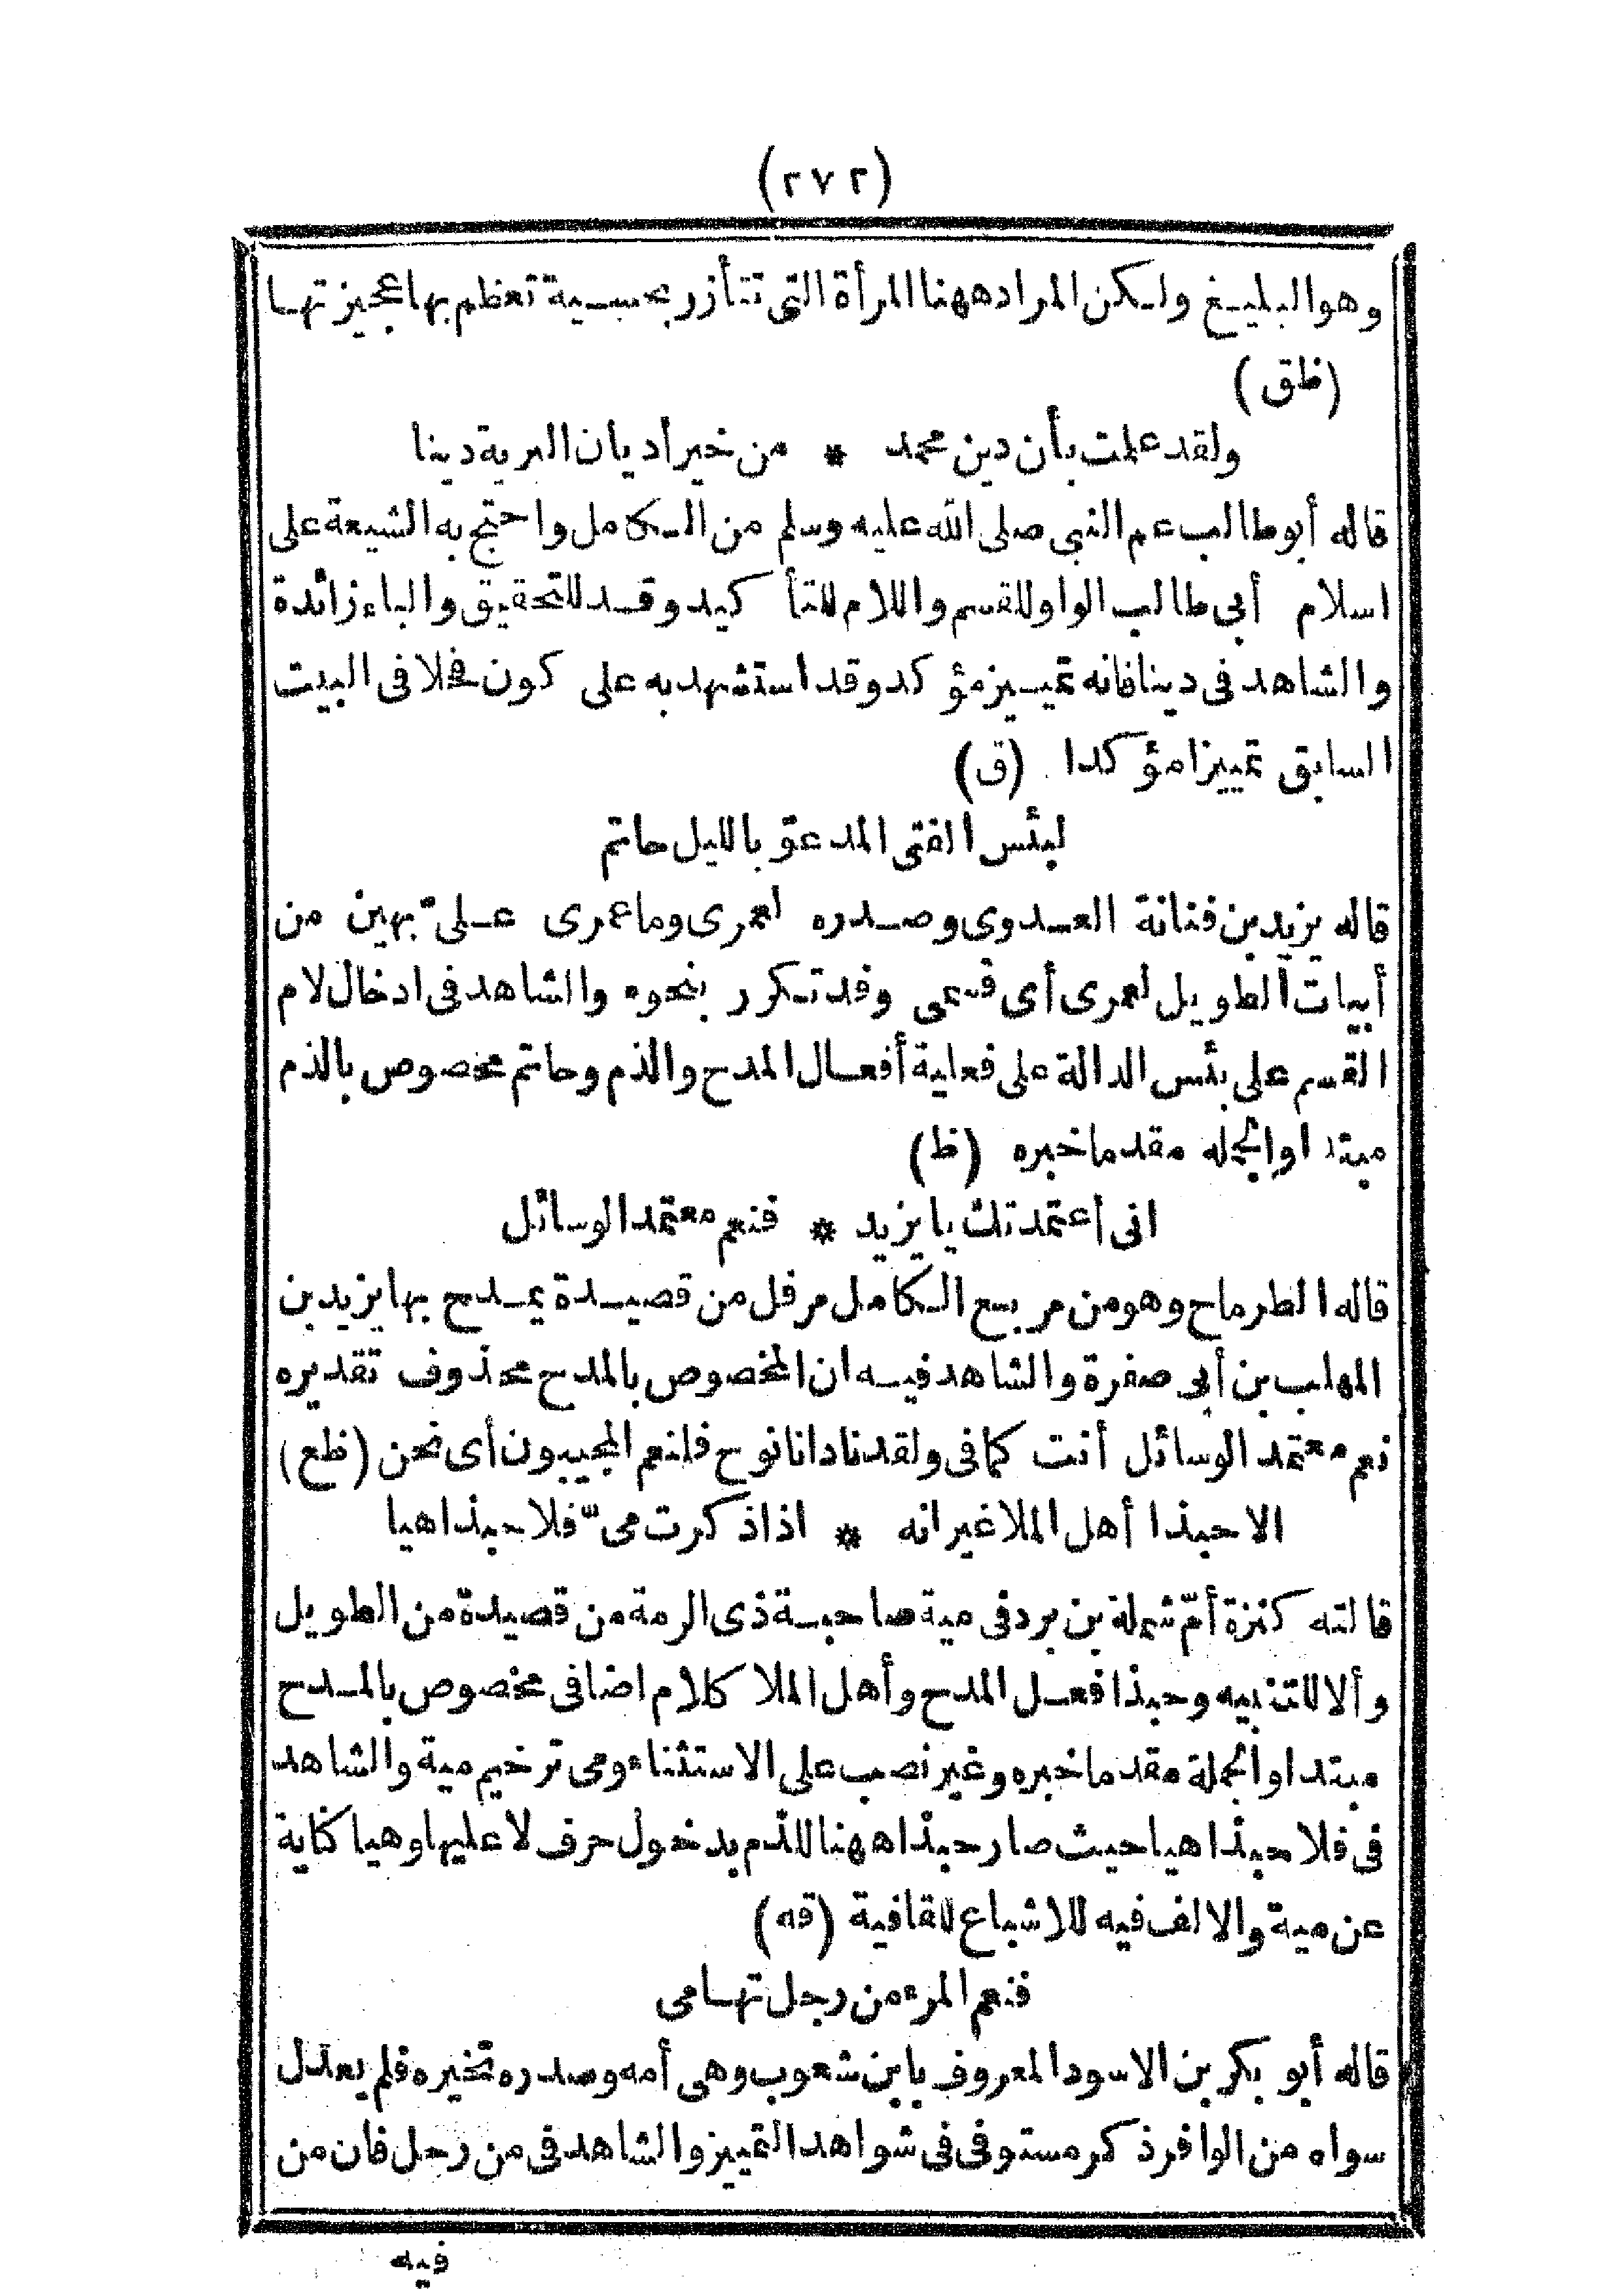 (٢٧٢)
وهو البليغ ولكن المراد ههنا المرأة التى تتأزر بحسبية تعظم بها عجيزتها
(ظق)
ولقد علمت بأن دين محمد * من خير أديان البرية دينا
قاله أبو طالب عم النبى صلى الله عليه وسلم من الكامل واحتج به الشيعة على
اسلام أبى طالب الواو للقسم واللام للتأ كيد وقد للتحقيق والباء زائدة
والشاهد فى دينا فانه تمييز مؤ كد وقد استشهد به على كون فحلا فى البيت
السابق تمييزا مؤ كدا (ق)
لبئس الفتى المدعوّ بالليل حاتم
قاله يزيد بن قنانة العدوى وصدره لعمرى وما عمرى علىّ بهين من
أبيات الطويل لعمرى أى قسمى وقد تكرر بنحوه والشاهد فى ادخال لام
القسم على بئس الدالة على فعلية أفعال المدح والذم وحاتم مخصوص بالذم
مبتدا والجملة مقدما خبره (ظ)
انى أعتمدتك يا يزيد * فنعم معتمد الوسائل
قاله الطرماح وهو من مربع الكامل مرفل من قصيدة يمدح بها يزيد بن
المهلب بن أبى صفرة والشاهد فيه ان المخصوص بالمدح محذوف تقديره
نعم معتمد الوسائل أنت كما فى ولقد نادانا نوح فلنعم المجيبون أى نحن (ظع)
الا حبذا أهل الملا غير انه * اذا ذكرت مىّ فلا حبذا هيا
قالته كنزة أمّ شملة بن برد فى مية صاحبة ذى الرمة من قصيدة من الطويل
وألا للتنبيه وحبذا فعل المدح وأهل الملا كلام اضافى مخصوص بالمدح
مبتدا والجملة مقدما خبره وغير نصب على الاستثناء ومى ترخيم مية والشاهد
فى فلا حبذا هيا حيث صار حبذا ههنا للذم بدخول حرف لا عليها وهيا كناية
عن مية والالف فيه للاشباع للقافية (قه)
فنعم المرء من رجل تهامى
قاله أبو بكر بن الاسود المعروف بابن شعوب وهى أمه وصدره تخيره فلم يعدل
سواه من الوافر ذكر مستوفى فى شواهد التمييز والشاهد فى من رجل فان من
فيه